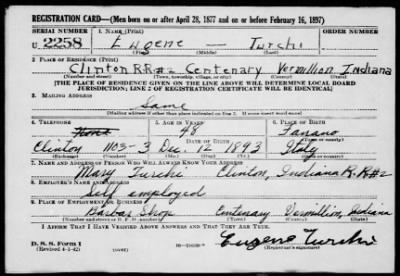 REGISTRATION CARD—(Men born on or after April 28, 1877 and on or before February 16, 1897)
SERIAL NUMBER 1. NAME (Print) ORDER NUMBER
U 2258 Eugene — Turchi
(First) (Middle) (Last)
2. PLACE OF RESIDENCE (Print)
Clinton R.R#2 Centenary Vermillion Indiana
(Number and street) (Town, township, village, or city) (County) (State)
[THE PLACE OF RESIDENCE GIVEN ON THE LINE ABOVE WILL DETERMINE LOCAL BOARD
JURISDICTION; LINE 2 OF REGISTRATION CERTIFICATE WILL BE IDENTICAL]
3. MAILING ADDRESS
Same
(Mailing address if other than place indicated on line 2. If same insert word same)
4. TELEPHONE 5. AGE IN YEARS 6. PLACE OF BIRTH
None 48 Fanano
DATE OF BIRTH
Clinton 1103-3 Dec. 12 1893 Italy
(Exchange) (Number) (Mo.) (Day) (Yr.) (State or country)
7. NAME AND ADDRESS OF PERSON WHO WILL ALWAYS KNOW YOUR ADDRESS
Mary Turchi Clinton, Indiana R.R#2
8. EMPLOYER'S NAME AND ADDRESS
Self employed
9. PLACE OF EMPLOYMENT OR BUSINESS
Barber Shop Centenary Vermillion, Indiana
(Number and street or R. F. D. number) (Town) (County) (State)
I AFFIRM THAT I HAVE VERIFIED ABOVE ANSWERS AND THAT THEY ARE TRUE.
D. S. S. Form 1
(Revised 4-1-42) (over) Eugene Turchi
(Registrant's signature)